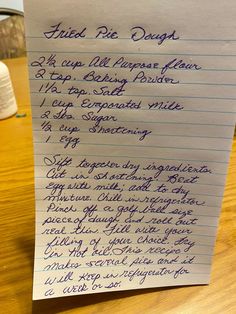 Fried Pie Dough
2½ cup All Purpose flour
2 tsp. Baking Powder
1½ tsp. Salt
1 cup Evaporated Milk
2 Sugar
½ cup Shortening
1 egg
Sift together dry ingredients
Cut in shortening. Beat
egg with milk; add to dry
mixture. Chill in refrigerator
Pinch off a golf ball size
piece of dough and roll out
real thin. Fill with your
filling of your choice. Fry
in hot oil. This recipe
makes several pies and it
will keep in refrigerator for
a week or so.